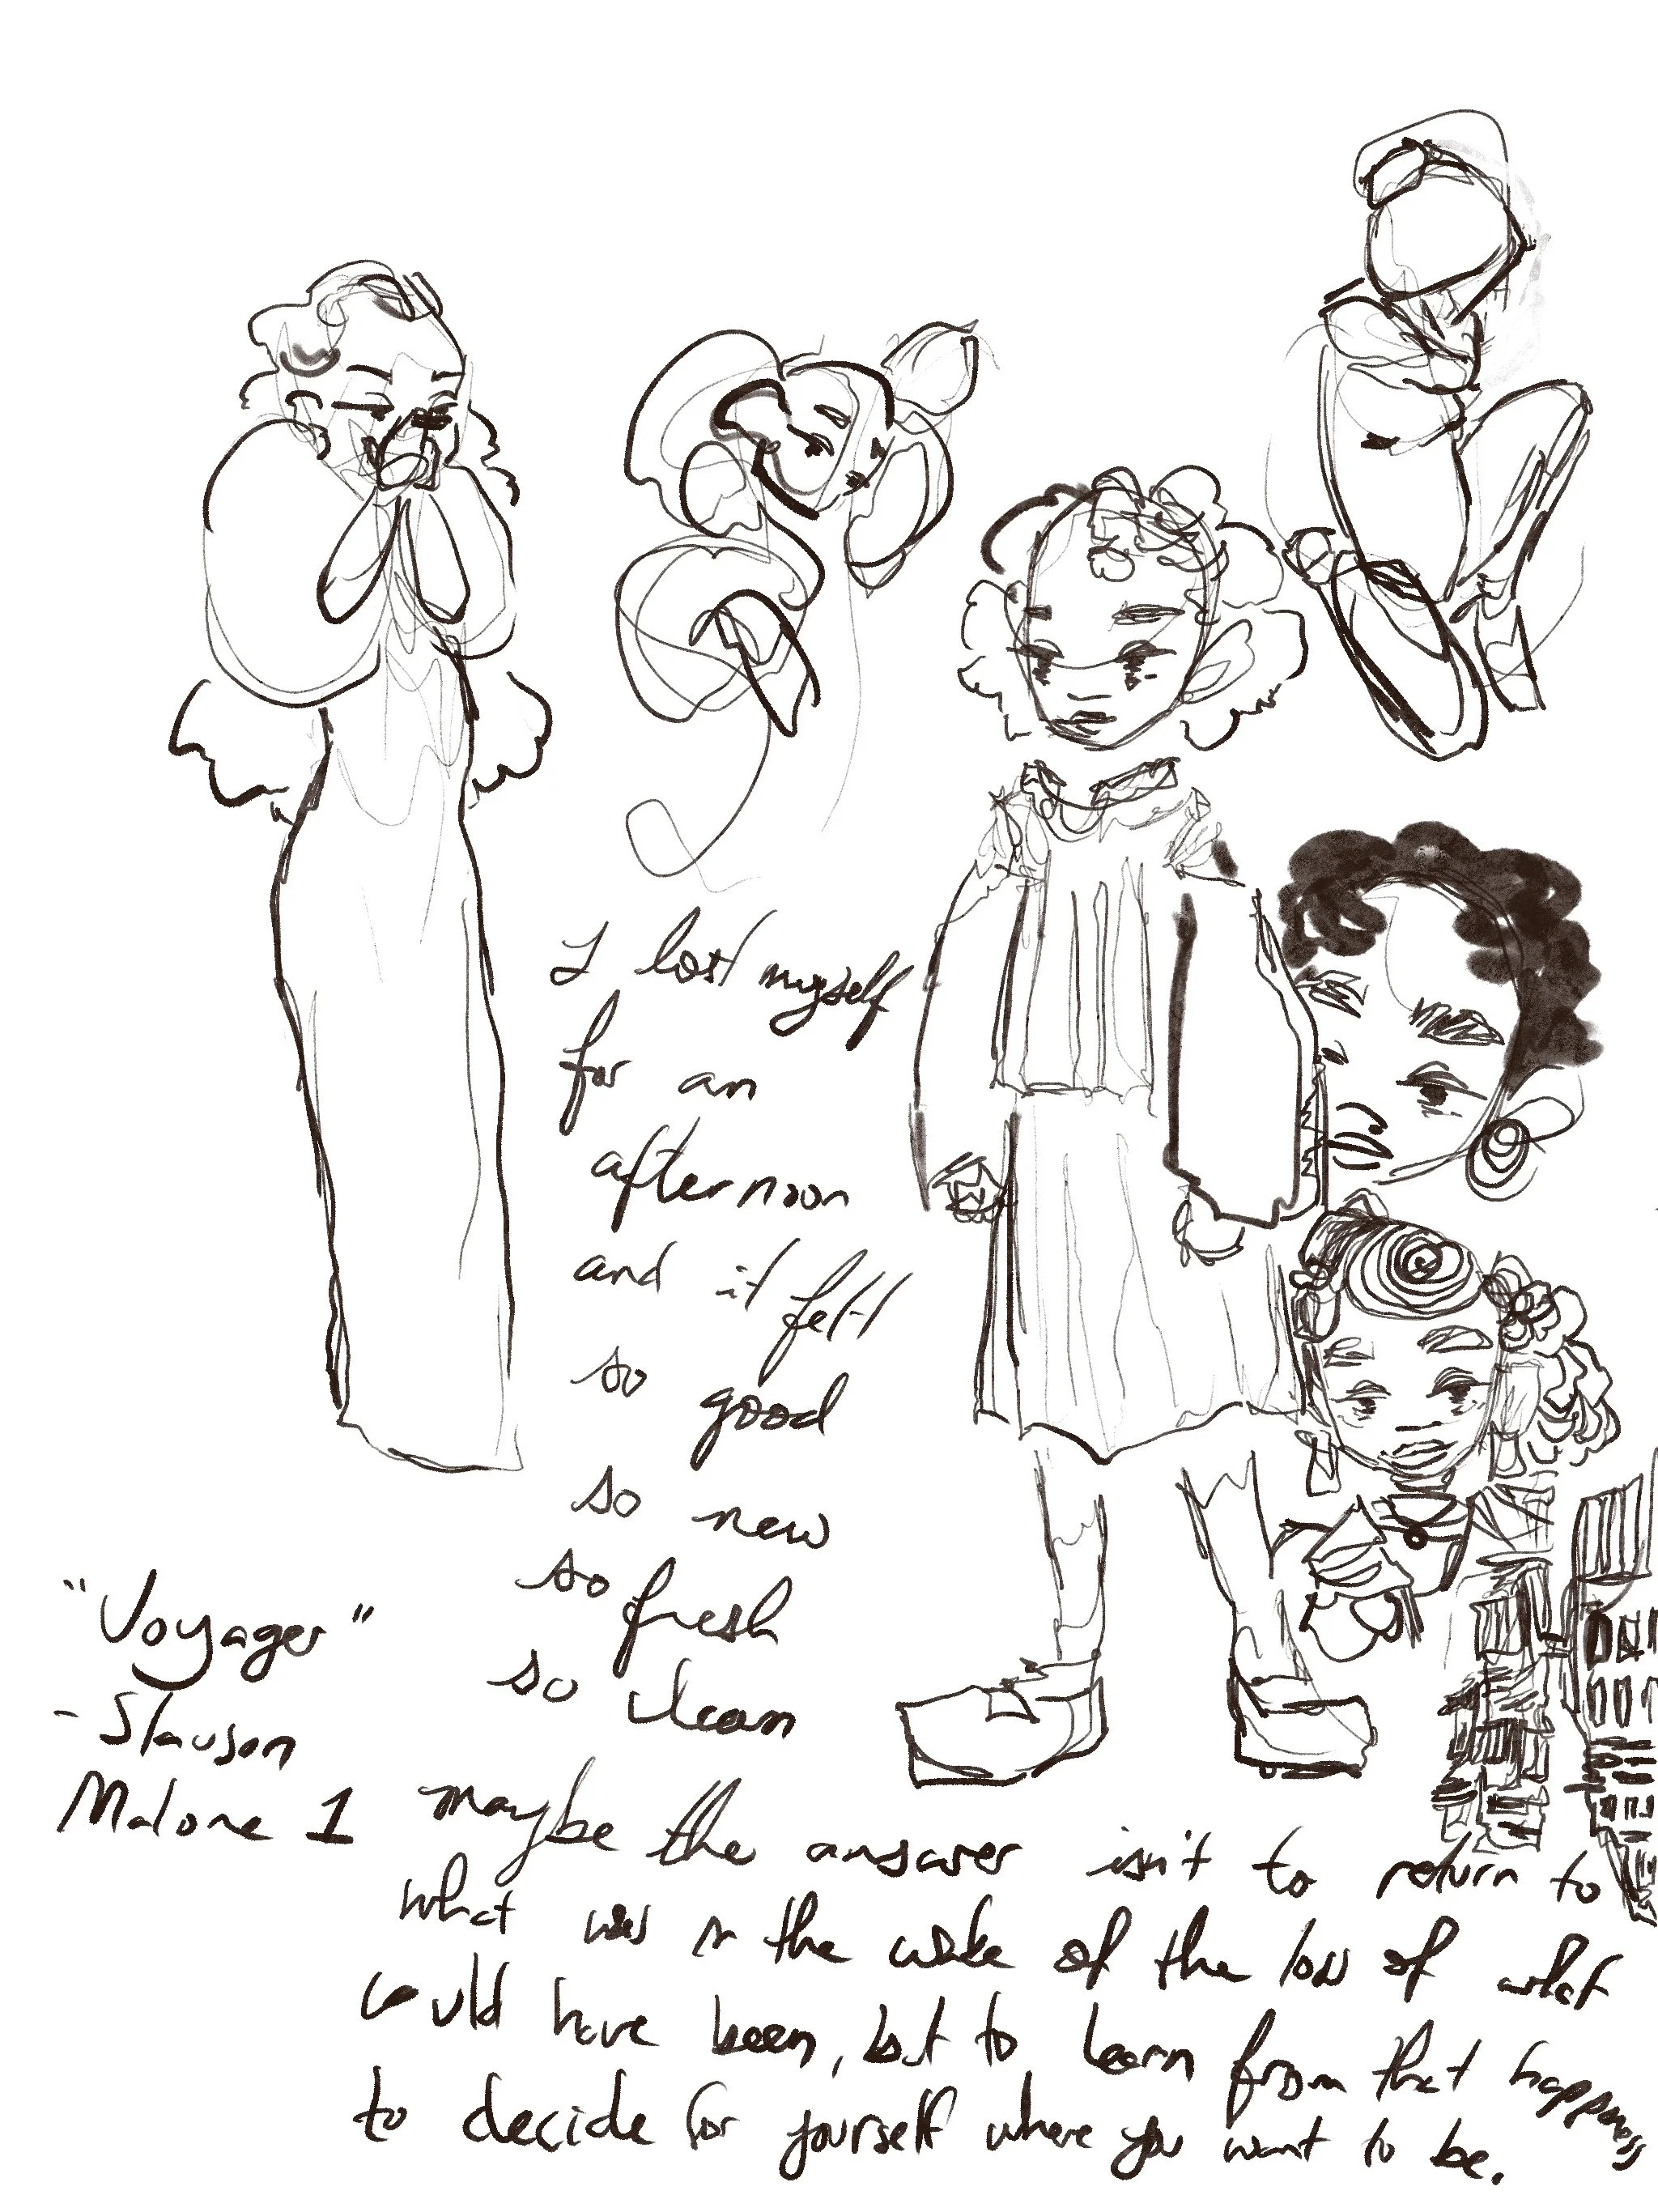 I lost myself
for an
afternoon
and it felt
so good
so new
so fresh
so clean
"Voyager"
- Slauson
Malone 1
maybe the answer isn't to return to
what was in the wake of the loss of what
could have been, but to learn from that happiness
to decide for yourself where you want to be.